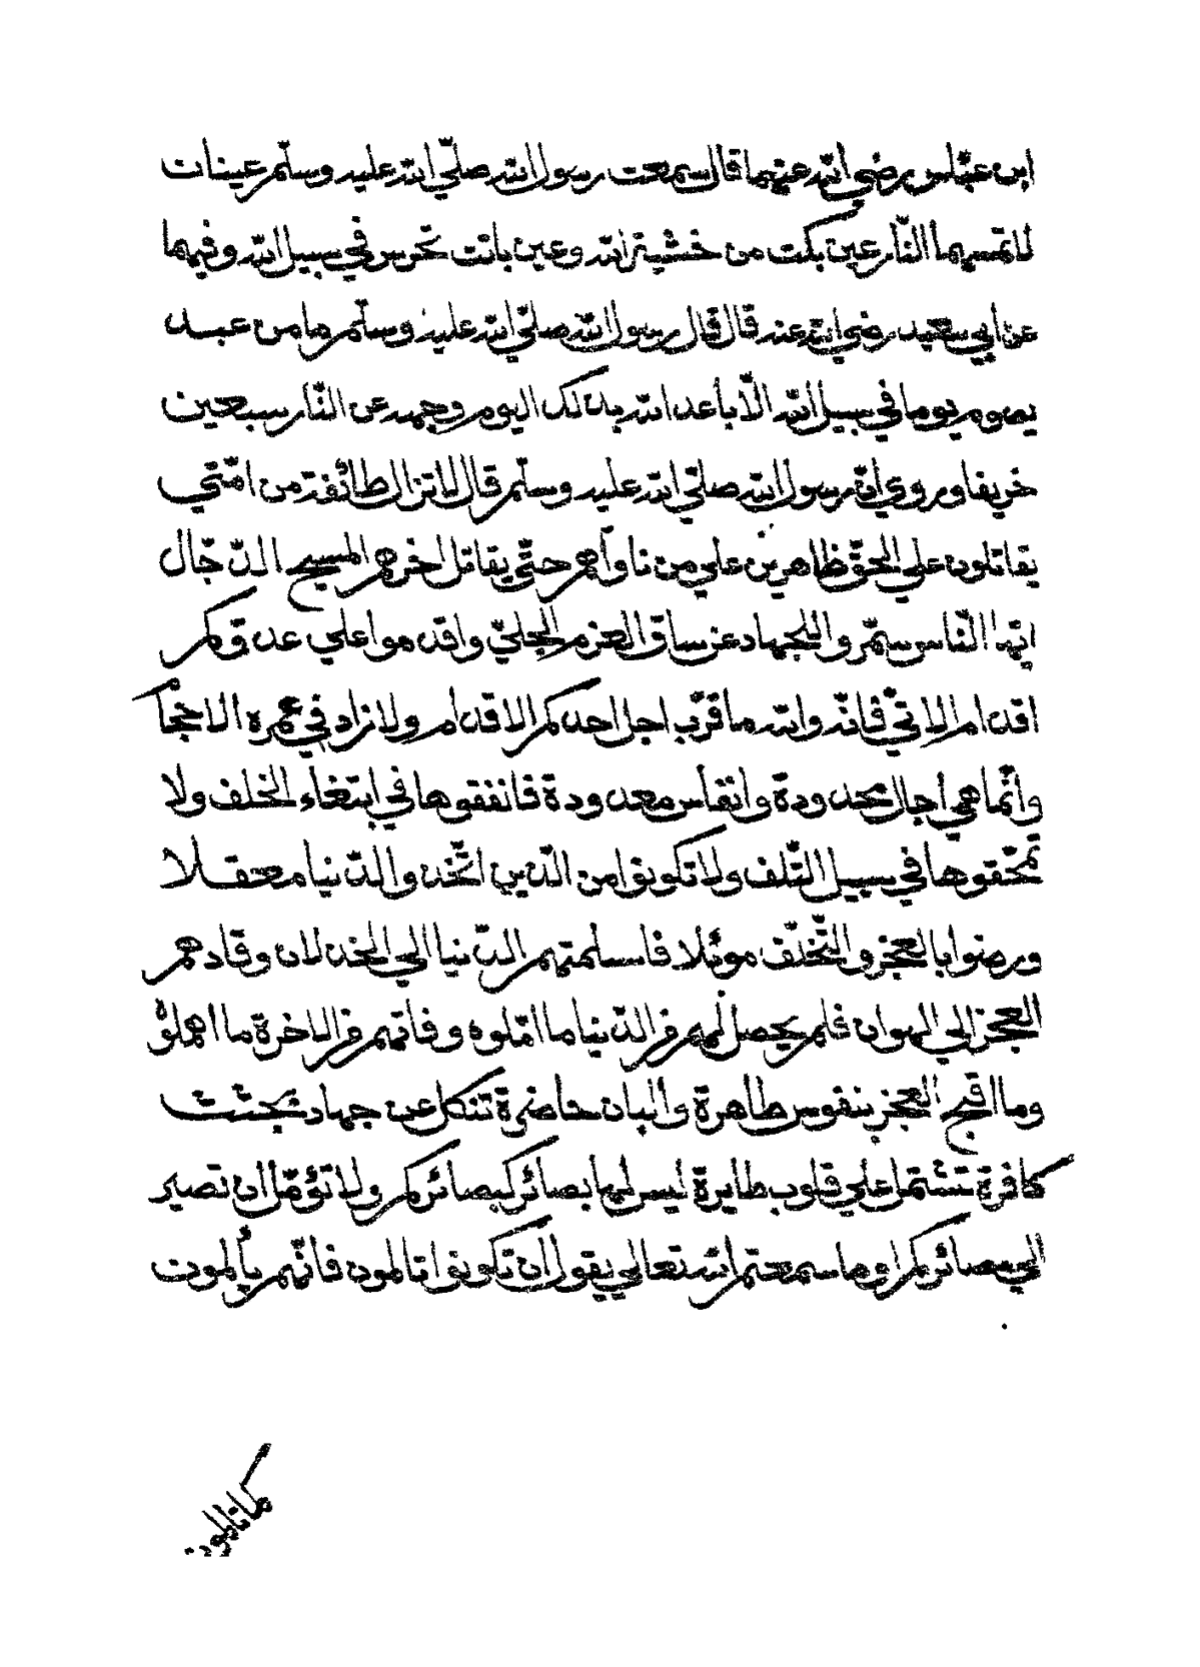 ابن عبّاس رضي الله عنهما قال سمعت رسول الله صلّي الله عليه وسلّم عينان
لا تمسهما النّار عين بكت من خشية الله وعين باتت تحرس في سبيل الله وفيهما
عن ابي سعيد رضي الله عنه قال قال رسول الله صلّي الله عليه وسلّم ما من عبد
يصوم يوما في سبيل الله الّا باعد الله بذلك اليوم وجهه عن النّار سبعين
خريفا وروي انّ رسول الله صلّي الله عليه وسلّم قال لا تزال طائفة من امّتي
يقاتلون علي الحقّ ظاهرين علي من ناوأهم حتّي يقاتل اخرهم المسيح الدّجّال
ايّها النّاس شمّروا للجهاد عن ساق العزم الجليّ واقدموا علي عدوّكم
اقدام الاتيّ فانّه والله ما قرّب اجل احدكم الاقدام ولا زاد في عمره الاحجا
وانّما هي اجال محدودة وانفاس معدودة فانفقوها في ابتغاء الخلف ولا
تمحّقوها في سبيل التّلف ولا تكونوا من الّذين اتّخذوا الدّنيا معقلا
ورضوا بالعجز والتّخلّف موئلا فاسلمتهم الدّنيا الي الخذلان وقادهم
العجز الي الهوان فلم يحصل لهم من الدّنيا ما امّلوه وفاتهم من الاخرة ما اهملوه
وما اقبح العجز بنفوس طاهرة وابدان حاضرة تنكل عن جهاد بجثث
كافرة تشتمل علي قلوب طايرة ليس لها بصائر كبصائركم ولا تؤمّل ان تصير
الي مصائركم او ما سمعتم الله تعالي يقول ان تكونوا تالمون فانّهم يألمون
كما تالمون